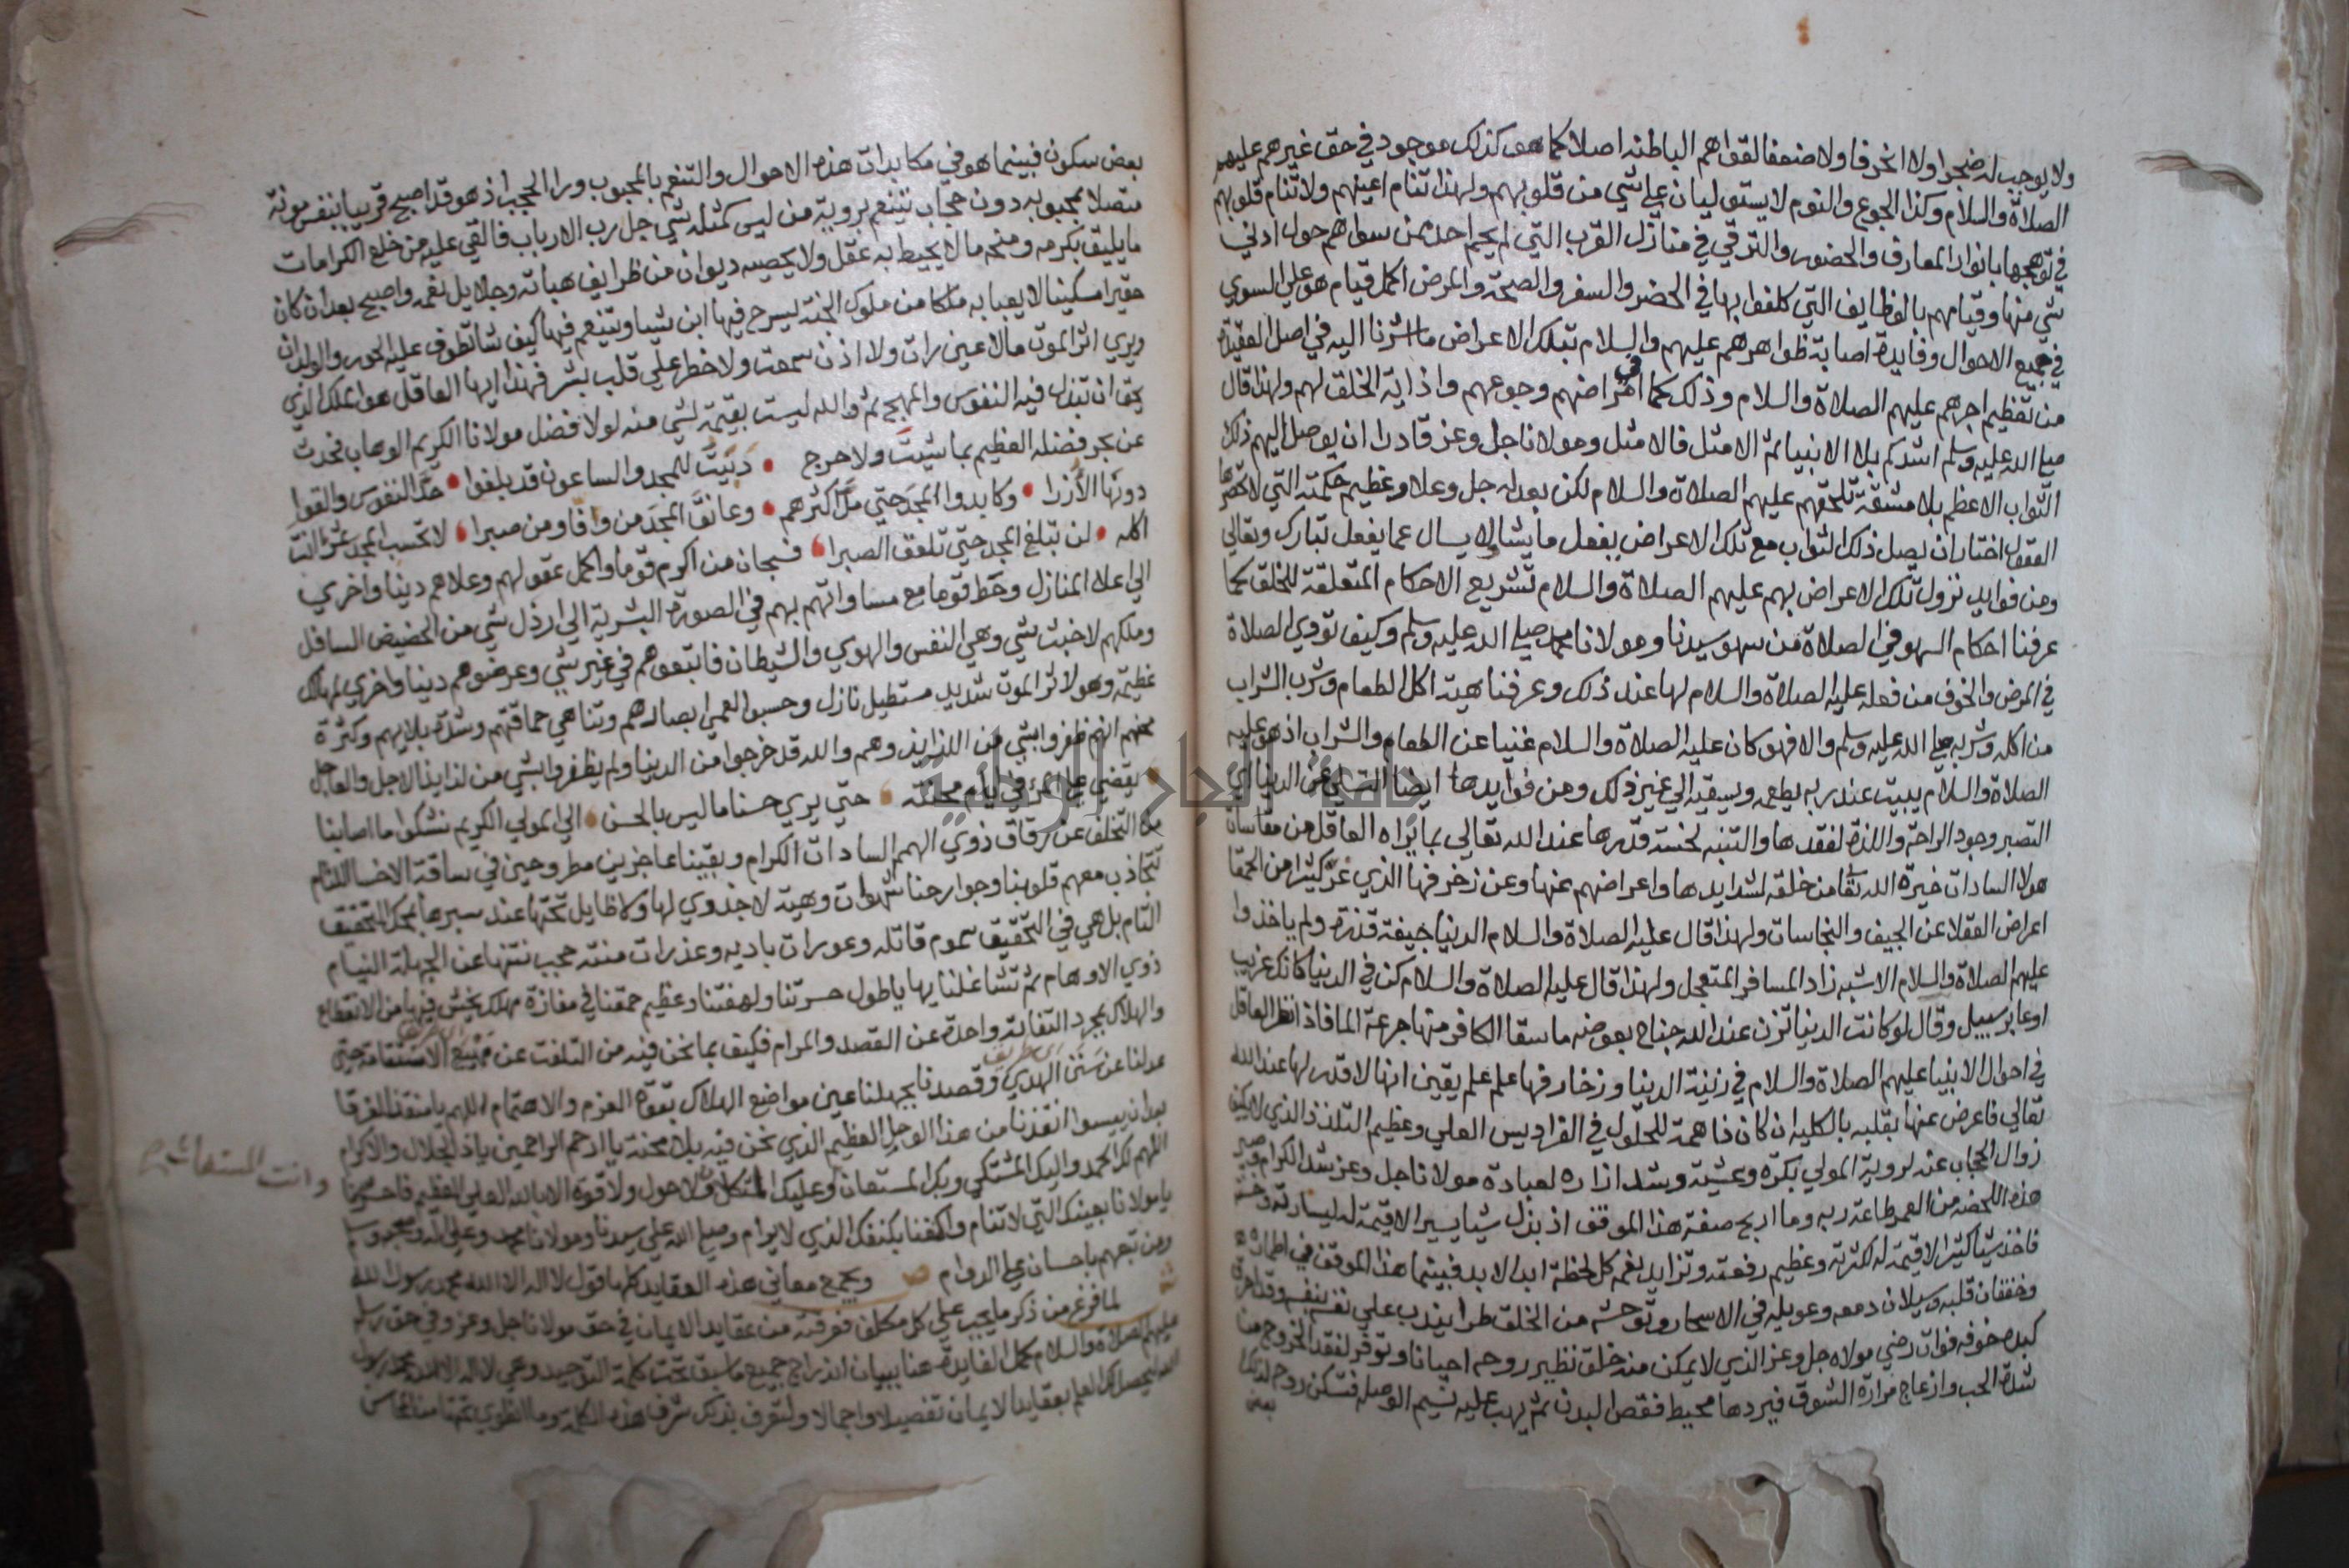 ولا يوجب لهم ضجرا ولا انحرفا ولا ضعفا لقواهم الباطنه اصلا كما هو كذلك موجود في حق غيرهم عليهم
الصلاة والسلام وكذا الجوع والنوم لا يستوليان علي شي من قلوبهم ولهذا تنام اعينهم ولا تنام قلوبهم
في توهجها بانوار المعارف والحضور والترقي في منازل القرب التي لم يحم احد ممن سواهم حول ادني
شي منها وقيامهم بالوظايف التي كلفوا بها في الحضر والسفر والصحة والمرض اكمل قيام هو علي السوي
في جميع الاحوال وفايدة اصابة ظواهرهم عليهم والسلام بتلك الاعراض ما اشرنا اليه في اصل العقيدة
من تعظيم اجرهم عليهم الصلاة والسلام وذلك كما في امراضهم وجوعهم واذاية الخلق لهم ولهذا قال
صلي الله عليه وسلم اشدكم بلا الانبيا ثم الامثل فالامثل ومولانا جل وعز قادرا ان يوصل اليهم ذلك
الثواب الاعظم بلا مشقة تلحقهم عليهم الصلاة والسلام لكن بعدله جل وعلا وعظيم حكمته التي لا تحصرها
العقول اختار ان يصل ذلك الثواب مع تلك الاعراض يفعل ما يشا ولا يسال عما يفعل تبارك وتعالي
ومن فوايد نزول تلك الاعراض بهم عليهم الصلاة والسلام تشريع الاحكام المتعلقة للخلق كما
عرفنا احكام السهو في الصلاة من سهو سيدنا ومولانا محمد صلي الله عليه وسلم وكيف تودي الصلاة
في المرض والخوف من فعله عليه الصلاة والسلام لها عند ذلك وعرفنا هية اكل الطعام وشرب الشراب
من اكله وشربه صلي الله عليه وسلم والا فهو كان عليه الصلاة والسلام غنيا عن الطعام والشراب اذ هو عليه
الصلاة والسلام يبيت عند ربه يطعمه ويسقيه الي غير ذلك ومن فوايدها ايضا التسلي عن الدنيا اي
التصبر وجود الراحة واللذة لفقدها والتنبه لخسة قدرها عند الله تعالي بما يراه العاقل من مقاساة
هولا السادات خيرة الله تعالي من خلقه لشدايدها واعراضهم عنها وعن زخرفها الذي غر كثيرا من الحمقا
اعراض العقلا عن الجيف والنجاسات ولهذا قال عليه الصلاة والسلام الدنيا جيفة قذرة ولم ياخذوا
عليهم الصلاة والسلام الا شبه زاد المسافر المتعجل ولهذا قال عليه الصلاة والسلام كن في الدنيا كانك غريب
او عابر سبيل وقال لو كانت الدنيا تزن عند الله جناح بعوضه ما سقا الكافر منها جرعة الما فاذا نظر العاقل
في احوال الانبيا عليهم الصلاة والسلام في زينة الدنيا وزخارفها علم علم يقين انها لا قدر لها عند الله
تعالي فاعرض عنها بقلبه بالكليه ان كان ذا همة للحلول في الفراديس العلي وعظيم التلذذ الذي لا يكيف
زوال الحجاب عنه لروية المولي بكرة وعشية وشد ازاره لعبادة مولانا جل وعز شد الكرام وصبر
هذه اللحضه من العمر طاعة ربه وما اربح صفقة هذا الموفق اذ بذل شيا يسيرا لا قيمة له
فاخذ شيا كثيرا لا قيمة له لكثرته وعظيم رفعته وتزايد نعمه كل لحظة ابد الابد فبينما هذا الموفق في
وخفقان قلبه وسيلان دمعه وعويله في الاسحار وتوحشه من الخلق طرا يندب علي نفسه بنفسه وقد احرق
كبده خوفه فوات رضي مولاه جل وعز الذي لا يمكن منه خلق نظير روحه احيانا وتوقر لفقد الخروج منا
شدة الحب وازعاج مرارة الشوق فيردها محيط قفص البدن ثم يهب عليه نسيم الوصله فتسكن روحه لذلك
بعض
بعض سكون فبينما هو في مكابدات هذه الاحوال والتنعم بالمحبوب ورا الحجب اذ هو قد اصبح قريبا بنفس موته
متصلا بمحبوبه دون حجاب يتنعم بروية من ليس كمثله شي جل رب الارباب فالقي عليه من خلع الكرامات
ما يليق بكرمه ومنحه ما لا يحيط به عقل ولا يحصيه ديوان من ظرايف هباته وجلايل نعمه واصبح بعد ان كان
حقيرا مسكينا لا يعبا به ملكا من ملوك الجنة يسرح فيها اين يشا ويتنعم فيها كيف شا تطوف عليه الحور والولدان
ويري اثر الموت ما لا عين رات ولا اذن سمعت ولا خطر علي قلب بشر فهذا ايها العاقل هو الملك الذي
يحق ان تبذل فيه النفوس والمهج ثم والله ليست بقيمة لشي منه لولا فضل مولانا الكريم الوهاب فحدث
عن بحر فضله العظيم بما شيت ولا حرج • دنيت للمجد والساعون قد بلغوا • جهد النفوس والقوا
دونها الأزرا • وكابدوا المجد حتي مل اكثرهم • وعانق المجد من وافا ومن صبرا • لا تحسب المجد تمرا انت
اكله • لن تبلغ المجد حتي تلعق الصبرا • فسبحان من اكرم قوما واكمل عقولهم وعلاهم دينا واخري
الي اعلا المنازل وحط قوما مع مساواتهم بهم في الصورة البشرية الي ارذل شي من الحضيض السافل
وملكهم لاخبث شي وهي النفس والهوي والشيطان فاتبعوهم في غير شي وعرضوهم دينا واخري لمهالك
عظيمة وهولا ثر الموت شديد مستطيل نازل وحسبوا لعمي ابصارهم وتناهي حماقتهم وشدة بلايهم وكثرة
محنهم انهم ظفروا بشي من اللذايذ وهم والله قد خرجوا من الدنيا ولم يظفروا بشي من لذايذ الاجل والعاجل
• يقضي علي المرء في ايام محنته • حتي يري حسنا ما ليس بالحسن • الي المولي الكريم نشكوا ما اصابنا
من التخلف عن رفاق ذوي الهمم السادات الكرام وبقينا عاجزين مطروحين في ساقة الاخسا اللئام
تتجاذب معهم قلوبنا وجوارحنا شهوات وهية لا جذوي لها ولا طايل تحتها عند سبرها بمحك التحقيق
التام بل هي في التحقيق سموم قاتله وعورات باديه وعذرات منتنه حجب نتنها عن الجهلة النيام
ذوي الاوهام ثم تشاغلنا بها ياطول حسرتنا ولهفتنا وعظيم حمقنا في مفازة مهلك يخشي فيها من الانقطاع
والهلاك بمجرد التفاتة واحدة عن القصد والمرام فكيف بما نحن فيه من التلفت عن مهيع الاستقامة حتي
عدلنا عن سنن الهدي وقصدنا بجهلنا عين مواضع الهلاك بقوة العزم والاهتمام اللهم يا منقذ الغرقا
بعد ان ييسوا انقذنا من هذا الوحل العظيم الذي نحن فيه بلا محنة يا ارحم الراحمين ياذا الجلال والاكرام
اللهم لك الحمد واليك المشتكي وبك المستعان وعليك المتكل ولا حول ولا قوة الا بالله العلي العظيم فاحرسنا
وانت المستغاث
يا مولانا بعينك التي لا تنام واكنفنا بكنفك الذي لا يرام وصلي الله علي سيدنا ومولانا محمد وعلي اله وصحبه وسلم
ومن تبعهم باحسان علي الدوام ص ويجمع معاني هذه العقايد كلها قول لا اله الا الله محمد رسول الله
ش لما فرغ من ذكر ما يجب علي كل مكلف معرفته من عقايد الايمان في حق مولانا جل وعز وفي حق رسله
عليهم الصلاة والسلام كمل الفايدة هنا ببيان اندراج جميع ما سبق تحت كلمة التوحيد وهي لا اله الا الله محمد رسول
الله ليحصل لك العلم بعقايد الايمان تفصيلا واجمالا ولتعرف بذلك شرف هذه الكلمة وما انطوي تحتها من المحاسن
جامعة النجاح الوطنية